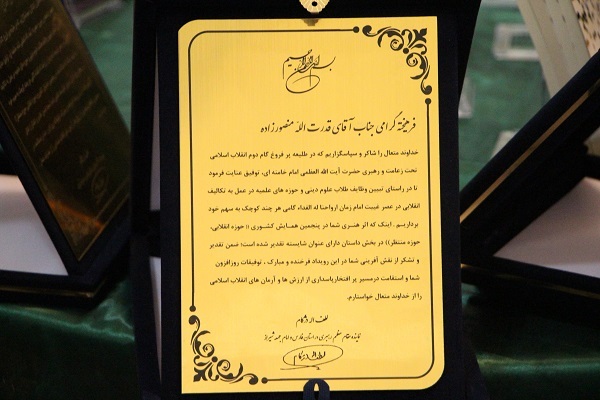 بسم الله الرحمن الرحیم
فرهیخته گرامی جناب آقای قدرت الله منصورزاده
خداوند متعال را شاکر و سپاسگزاریم که در طلیعه پر فروغ گام دوم انقلاب اسلامی
تحت زعامت و رهبری حضرت آیت الله العظمی امام خامنه ای، توفیق عنایت فرمود
تا در راستای تبیین وظایف طلاب علوم دینی و حوزه های علمیه در عمل به تکالیف
انقلابی در عصر غیبت امام زمان ارواحنا له الفداء گامی هر چند کوچک به سهم خود
برداریم . اینک که اثر هنری شما در پنجمین همایش کشوری (( حوزه انقلابی،
حوزه منتظر)) در بخش داستان دارای عنوان شایسته تقدیر شده است؛ ضمن تقدیر
و تشکر از نقش آفرینی شما در این رویداد فرخنده و مبارک ، توفیقات روزافزون
شما و استقامت درمسیر پر افتخارپاسداری از ارزش ها و آرمان های انقلاب اسلامی
را از خداوند متعال خواستارم.
لطف اله دژکام
نماینده مقام معظم رهبری در استان فارس و امام جمعه شیراز